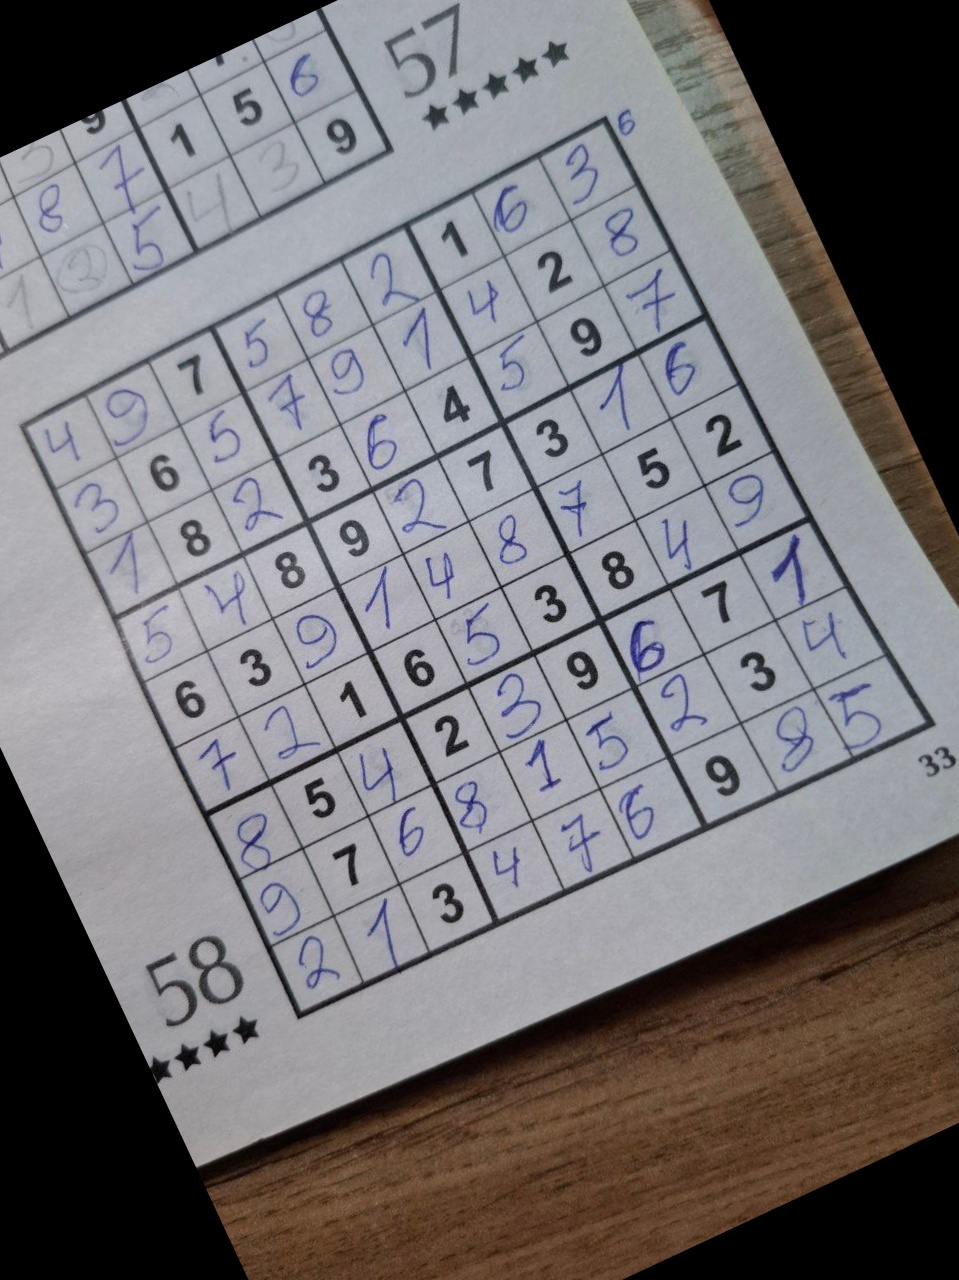 9
8 7 1 5 6
1 2 5 4 3 9
57
6
4 9 7 5 8 2 1 6 3
3 6 5 7 9 1 4 2 8
1 8 2 3 6 4 5 9 7
5 4 8 9 2 7 3 1 6
6 3 9 1 4 8 7 5 2
7 2 1 6 5 3 8 4 9
8 5 4 2 3 9 6 7 1
9 7 6 8 1 5 2 3 4
2 1 3 4 7 6 9 8 5
58
33